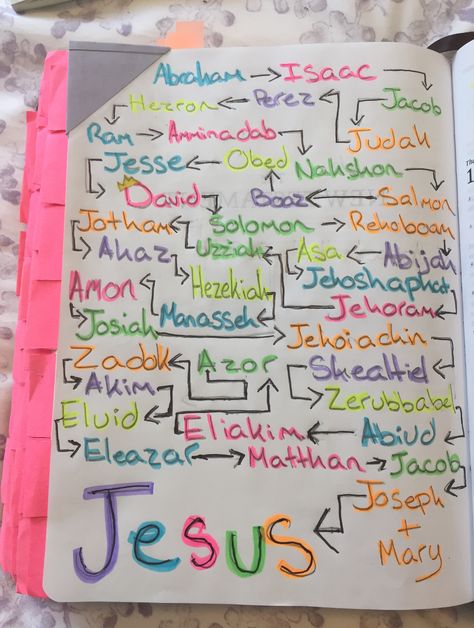 Abraham → Isaac
Hezron ← Perez Jacob
Ram → Amminadab Judah
Jesse ← Obed Nahshon
David Boaz ← Salmon
Jotham Solomon → Rehoboam
Ahaz Uzziah Asa ← Abijah
Amon Hezekiah Jehoshaphat
Josiah Manasseh Jehoram
Jehoiachin
Zadok Azor Shealtiel
Akim Zerubbabel
Eluid Eliakim ← Abiud
Eleazar → Matthan → Jacob
Joseph
+
Mary
Jesus